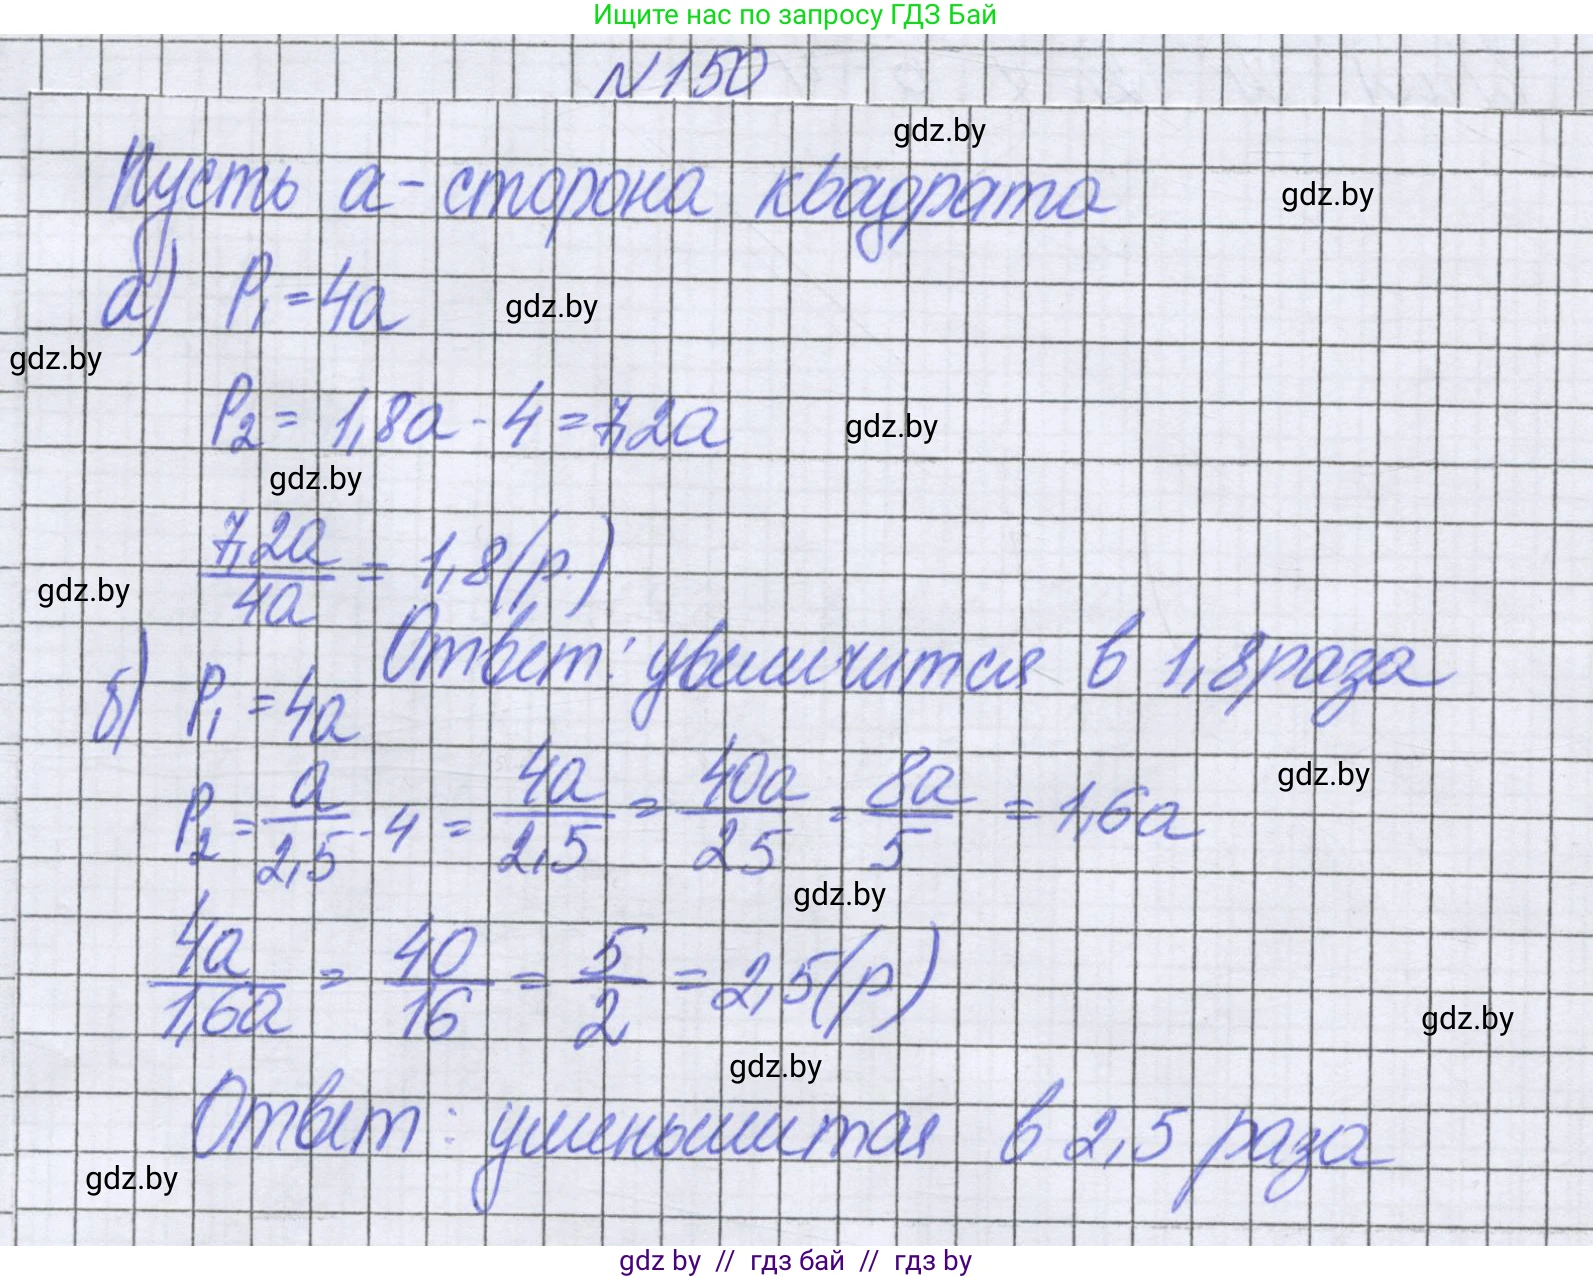 Ищите нас по запросу ГДЗ Бай
№150
gdz.by
Пусть а - сторона квадрата
gdz.by
а) P₁ = 4a
gdz.by
gdz.by
P₂ = 1,8a · 4 = 7,2a
gdz.by
gdz.by
7,2a/4a = 1,8 (р.)
gdz.by
Ответ: увеличится в 1,8 раза
б) P₁ = 4a
gdz.by
P₂ = a/2,5 · 4 = 4a/2,5 = 40a/25 = 8a/5 = 1,6a
gdz.by
4a/1,6a = 40/16 = 5/2 = 2,5 (р)
gdz.by
gdz.by
Ответ: уменьшится в 2,5 раза
gdz.by
gdz by // гдз бай // гдз by